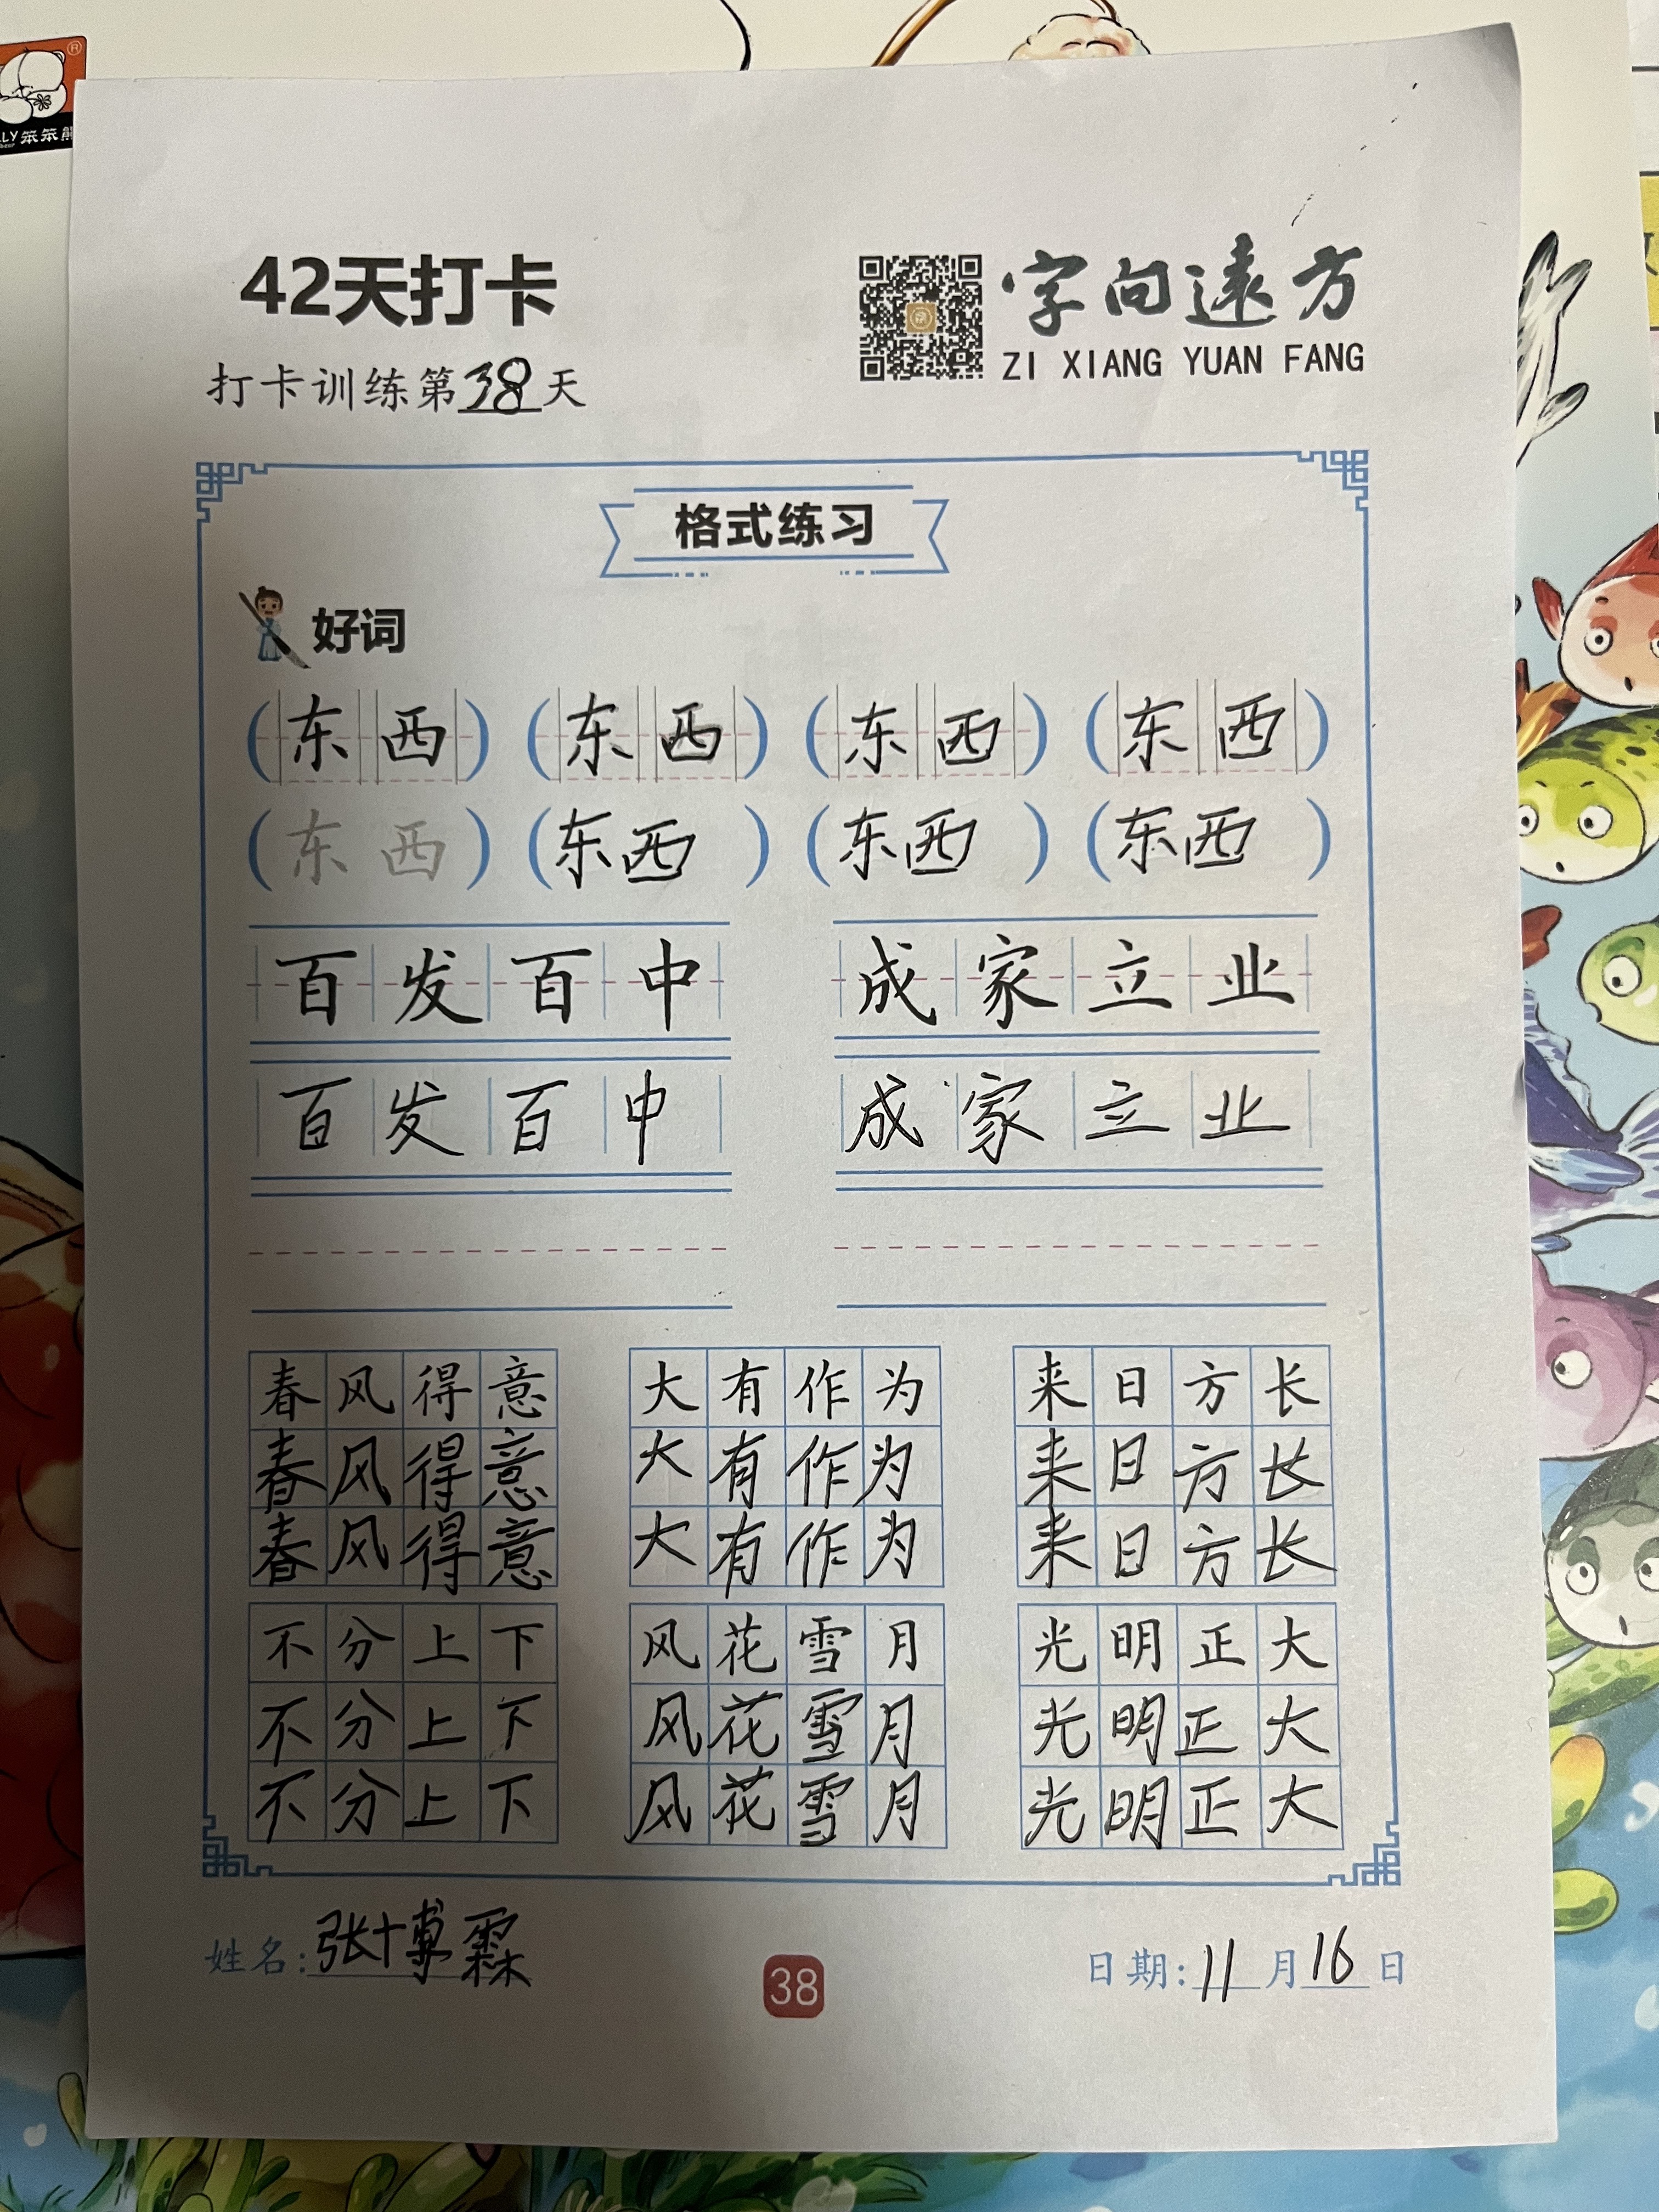 LLY 笨笨熊
42天打卡
字向遠方
ZI XIANG YUAN FANG
打卡训练第38天
格式练习
好词
(东西) (东西) (东西) (东西)
(东西) (东西) (东西) (东西)
百发百中 成家立业
百发百中 成家立业
春风得意 大有作为 来日方长
春风得意 大有作为 来日方长
春风得意 大有作为 来日方长
不分上下 风花雪月 光明正大
不分上下 风花雪月 光明正大
不分上下 风花雪月 光明正大
姓名:张博霖 38 日期:11月16日